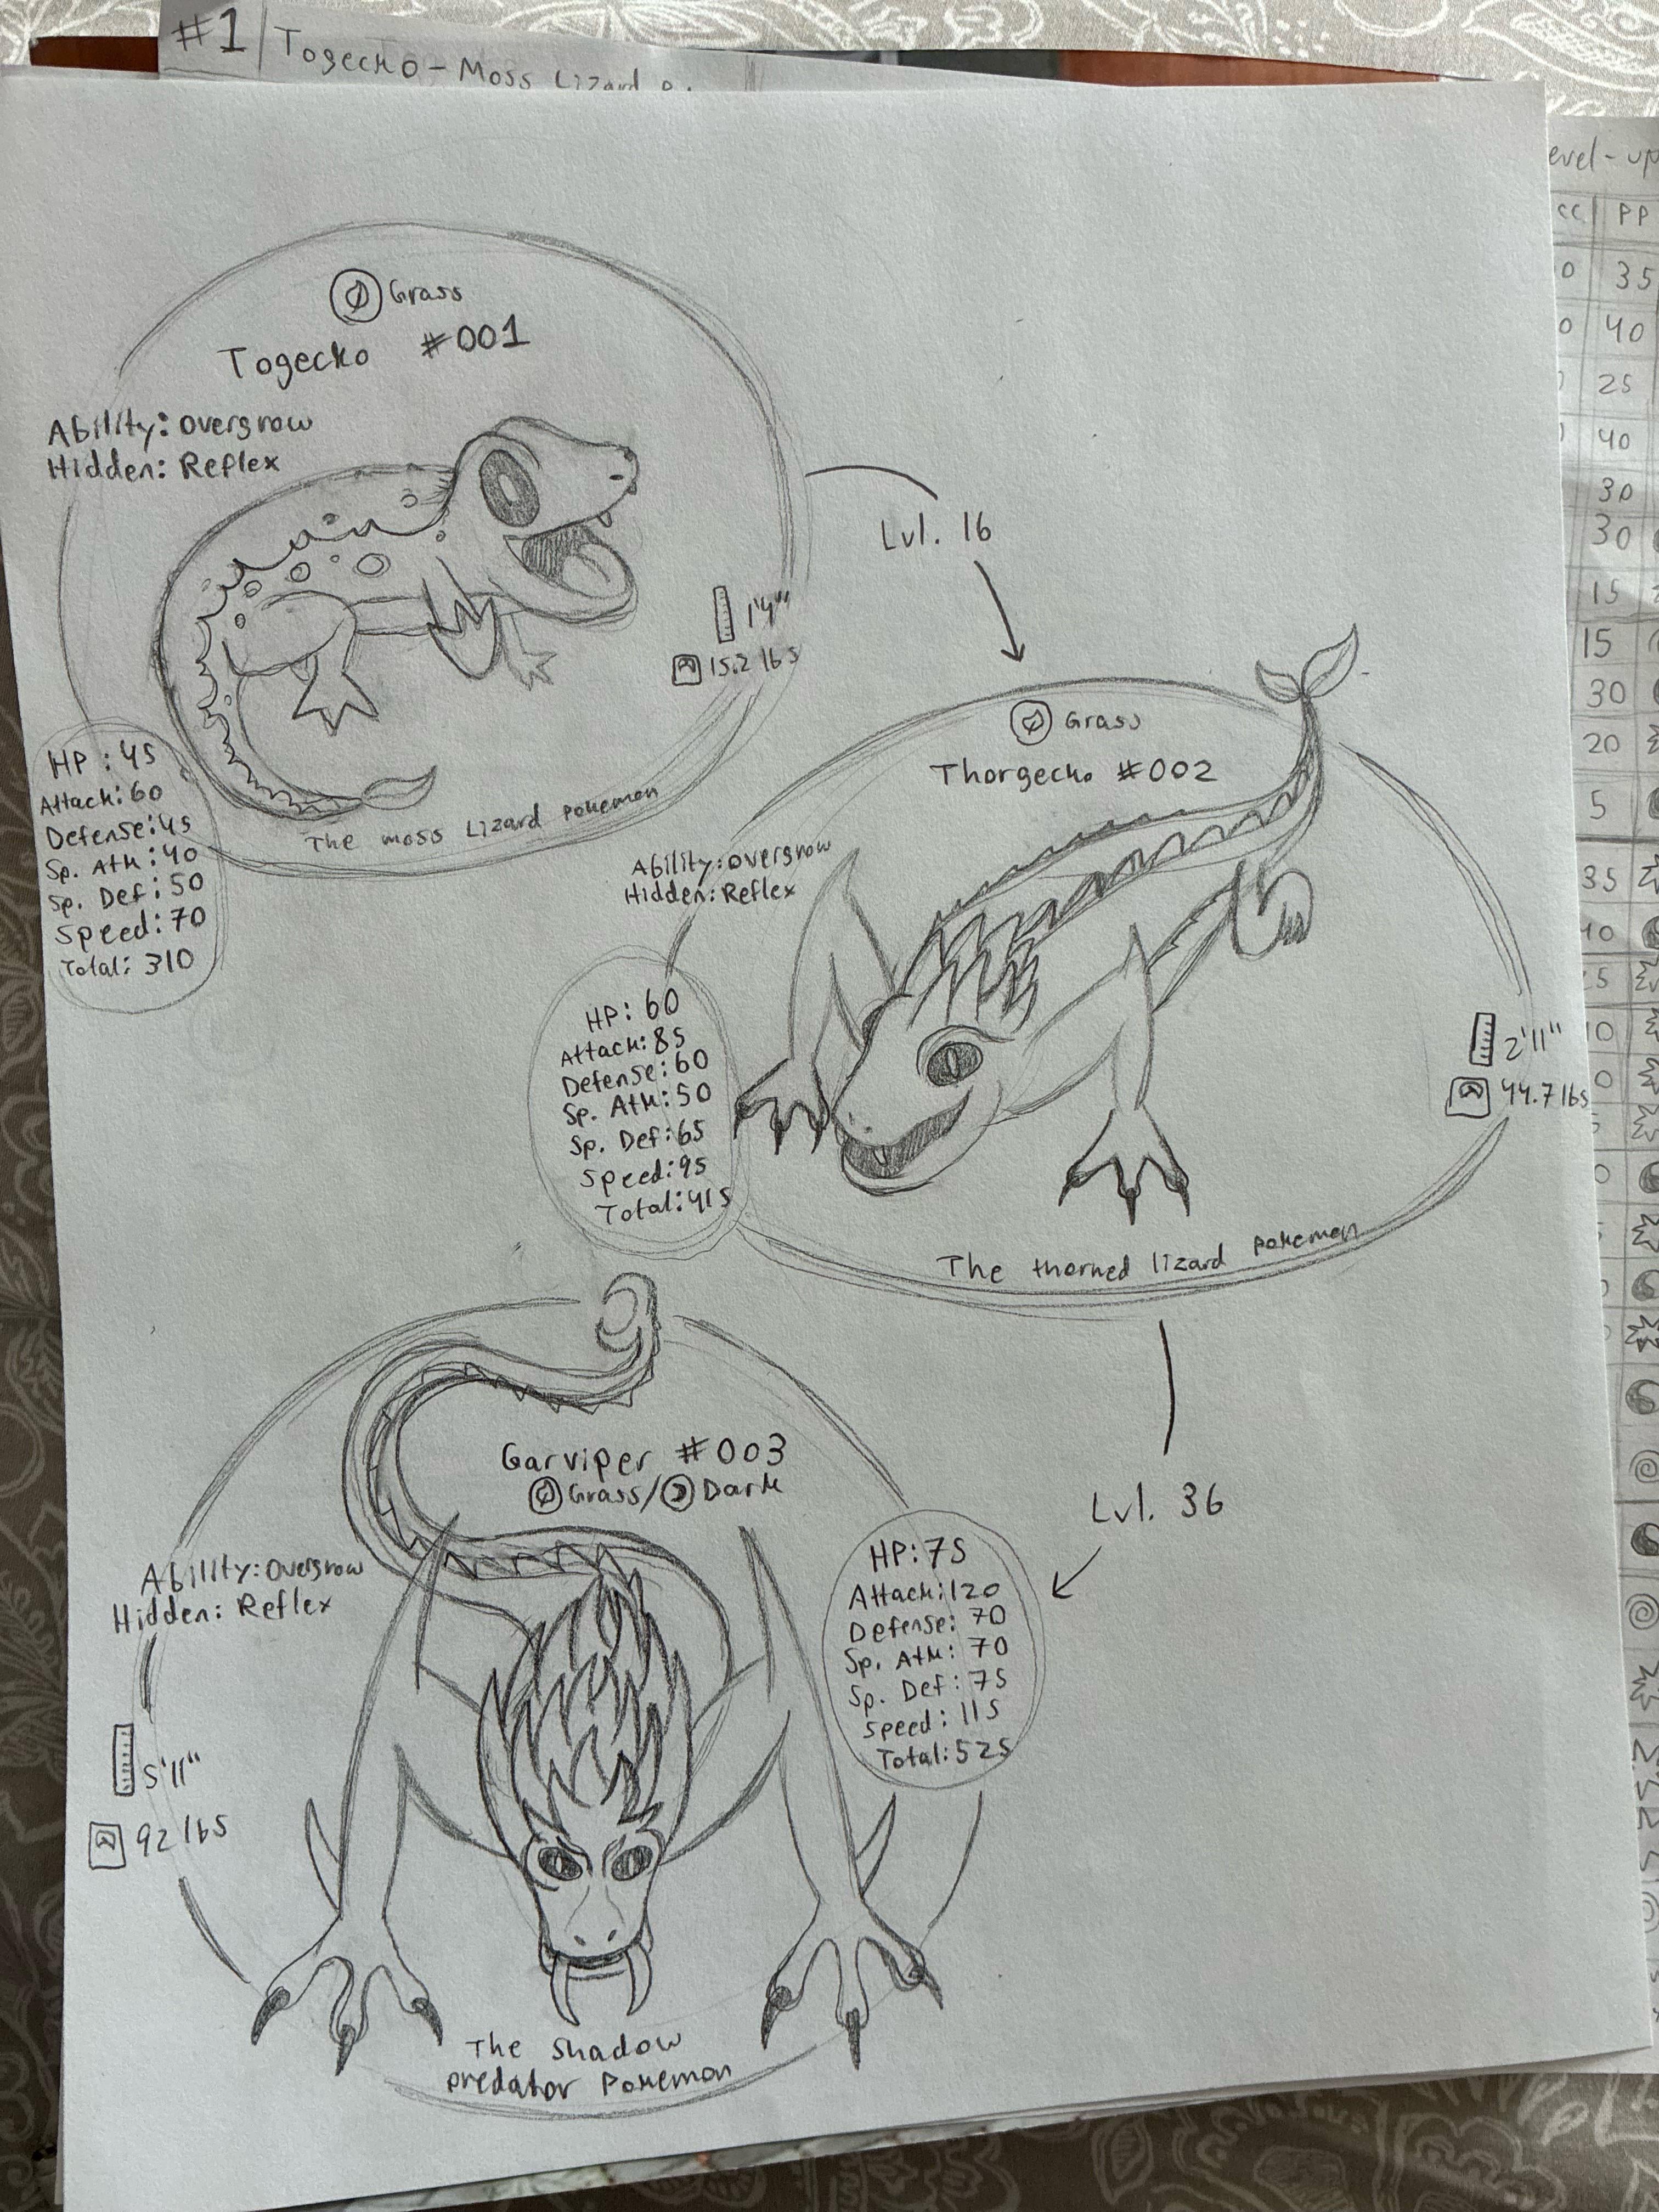 #1 Togecko - Moss Lizard
Grass
Togecko #001
Ability: overgrow
Hidden: Reflex
1'4"
15.2 lbs
HP: 45
Attack: 60
Defense: 45
Sp. Atk: 40
Sp. Def: 50
Speed: 70
Total: 310
The moss Lizard pokemon
Lvl. 16
Grass
Thorgecko #002
Ability: overgrow
Hidden: Reflex
HP: 60
Attack: 85
Defense: 60
Sp. Atk: 50
Sp. Def: 65
Speed: 95
Total: 415
2'11"
44.7 lbs
The thorned lizard pokemon
Lvl. 36
Garviper #003
Grass/Dark
Ability: Overgrow
Hidden: Reflex
HP: 75
Attack: 120
Defense: 70
Sp. Atk: 70
Sp. Def: 75
Speed: 115
Total: 525
5'11"
92 lbs
The Shadow
predator Pokemon
PP
35
40
25
40
30
30
15
15
30
20
5
35